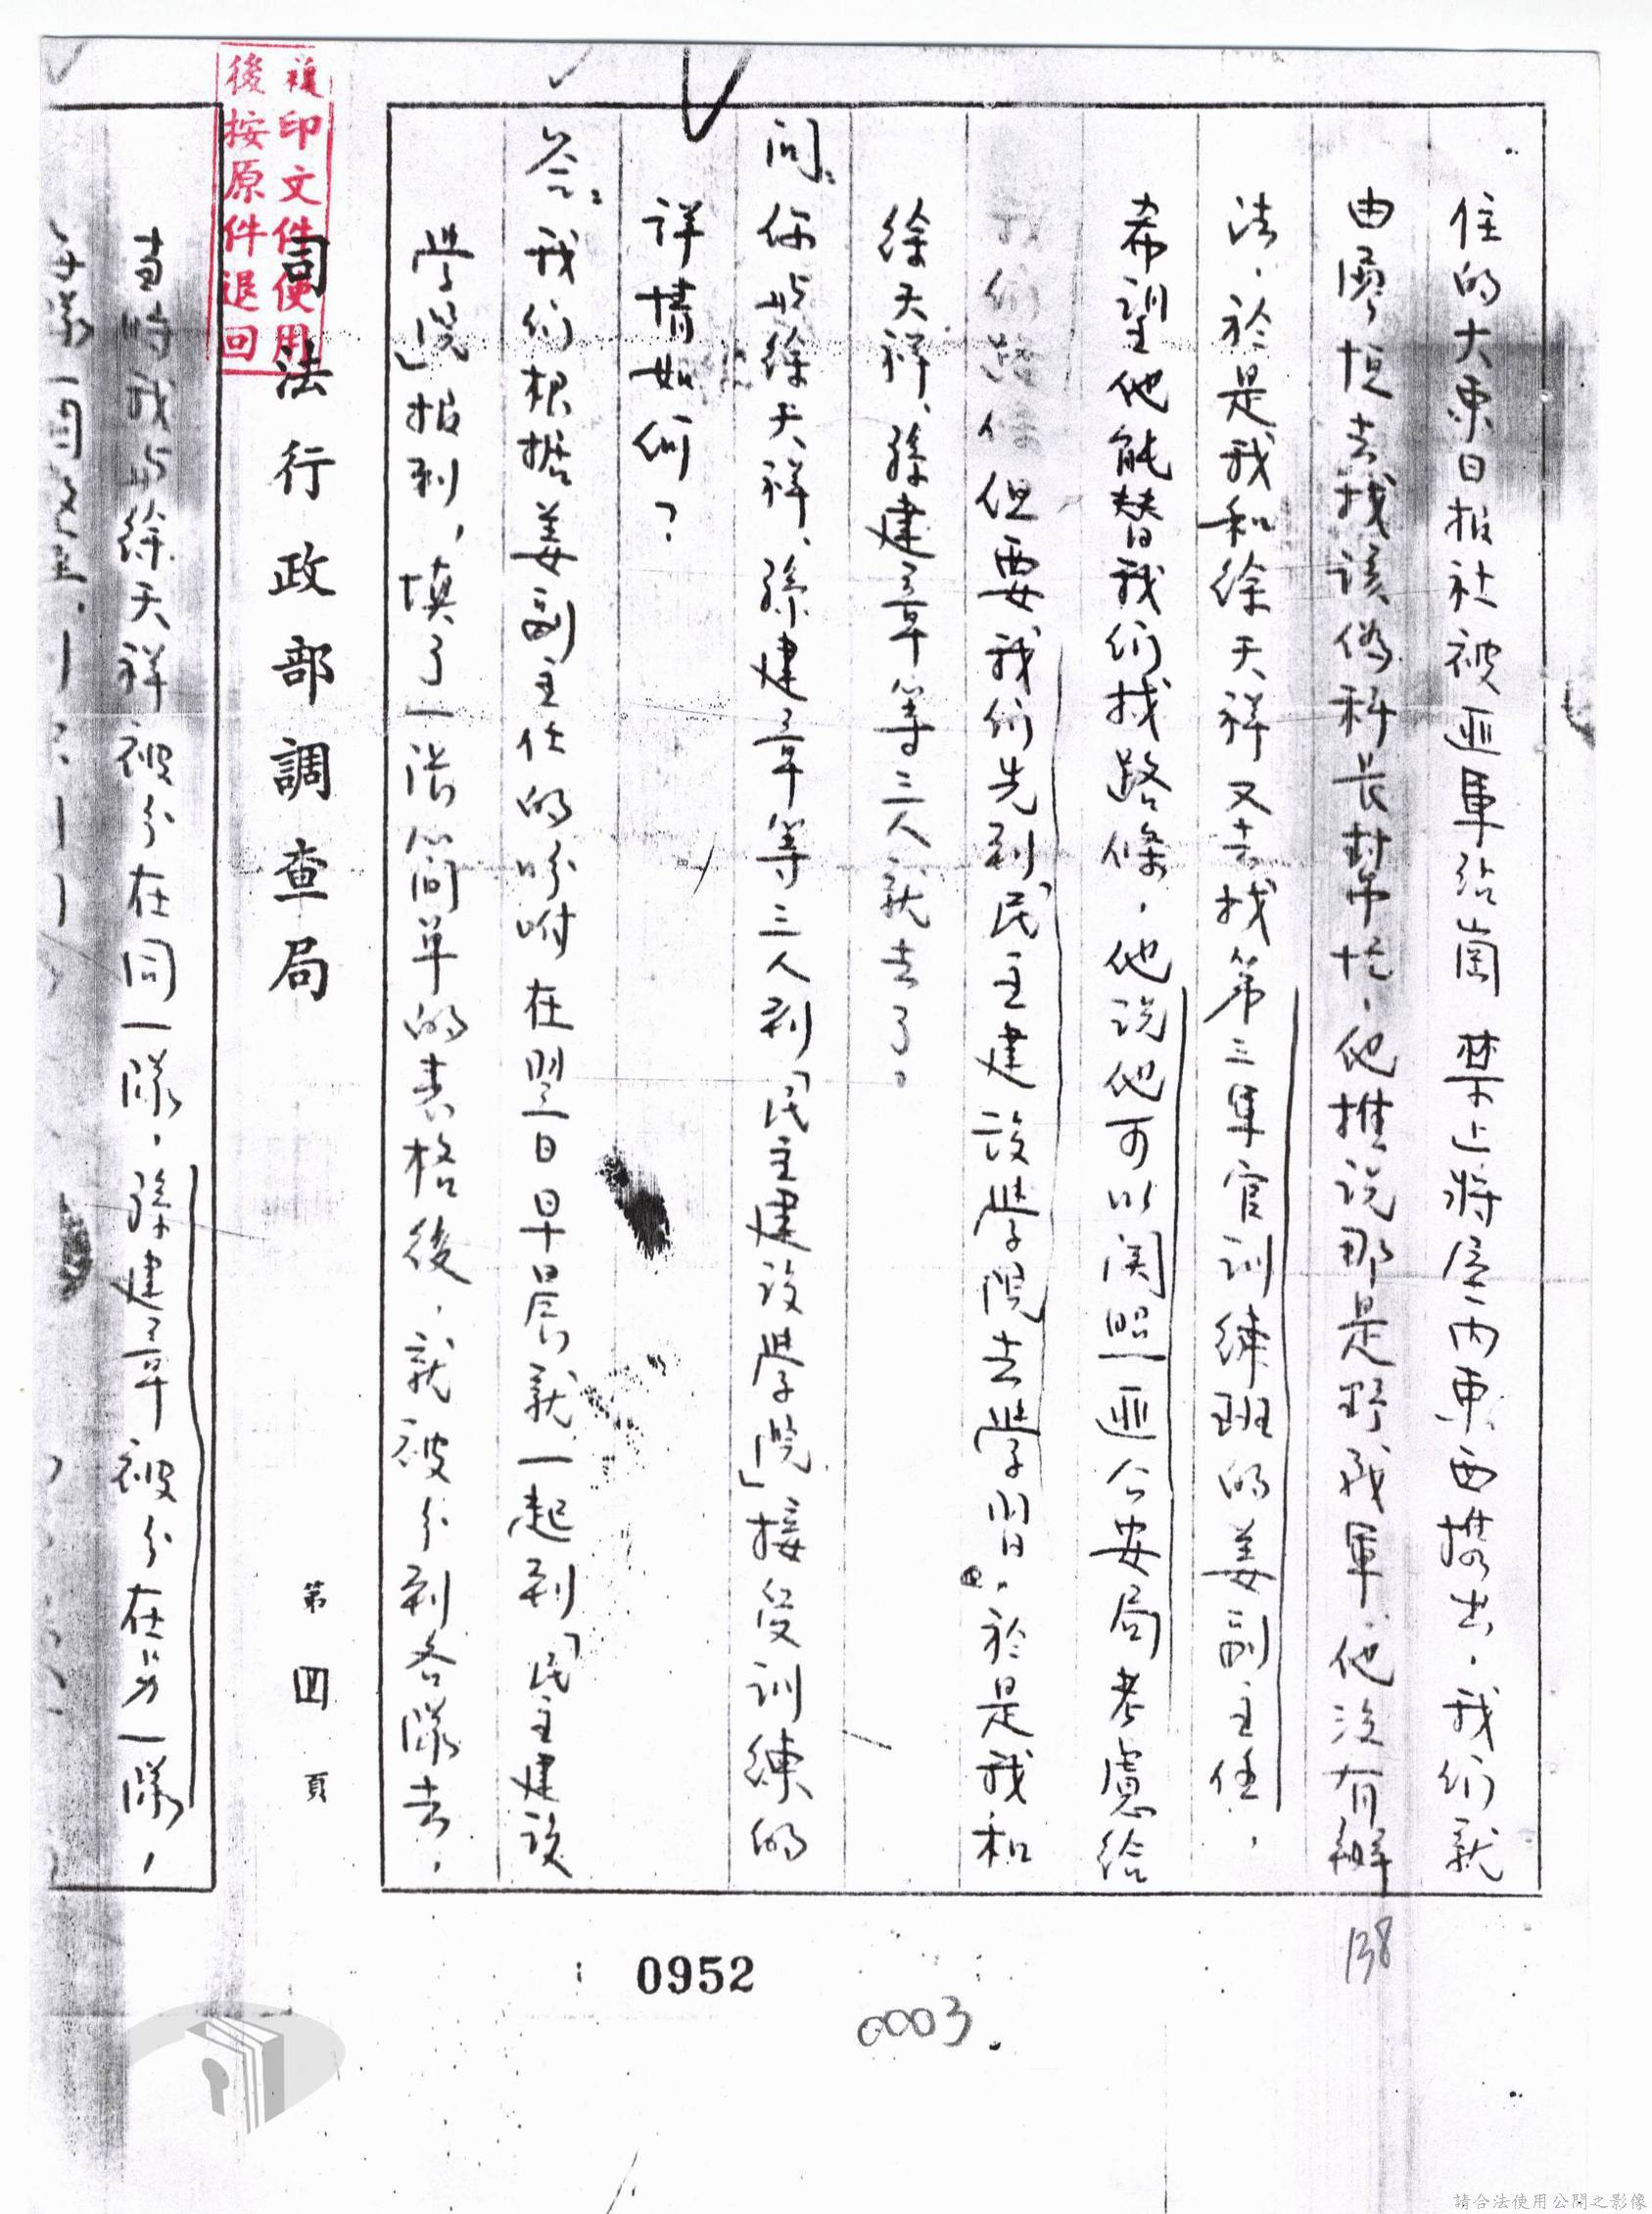 住的大東日报社被匪軍给崗禁止將屋内東西携出,我们就
由廖恒去找該偽科長幫忙,他推説那是野战軍,他沒有辦
法,於是我和徐天祥又去找第三軍官训練班的姜副主任,
希望他能替我们找路條,他说他可以関照匪公安局考慮给
我们路條但要我们先到「民主建设学院去学習。於是我和
徐天祥、孫建章等三人就去了。
问:你與徐天祥、孫建章等三人到「民主建设学院」接受训練的
詳情如何?
答:我们根据姜副主任的吩咐在翌日早晨就一起到「民主建设
学院」报到,填了一张简单的表格後,就被分到各隊去,
司法行政部調查局
第四頁
當時我與徐天祥被分在同一隊,孫建章被分在另一隊,
複印文件使用
後按原件退回
138
0952
0003.
請合法使用公開之影像